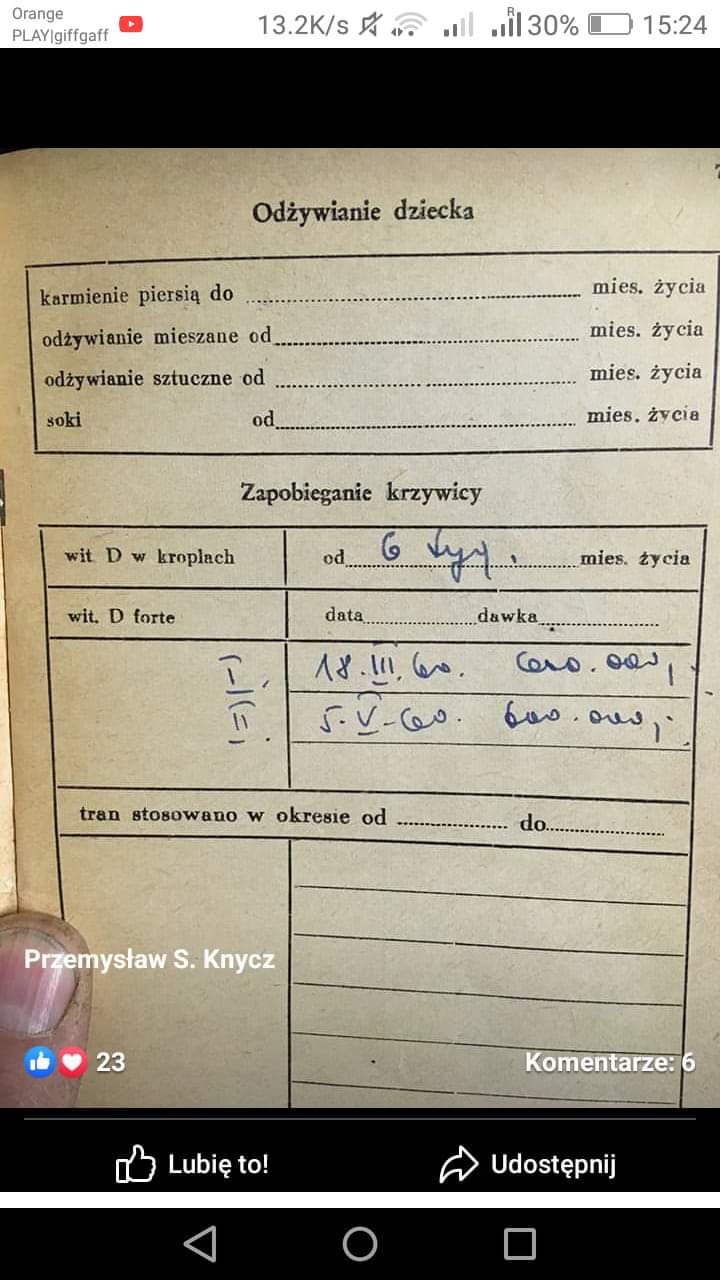 Orange
PLAY|giffgaff
13.2K/s
R
30%
15:24
7
Odżywianie dziecka
karmienie piersią do .......... mies. życia
odżywianie mieszane od .......... mies. życia
odżywianie sztuczne od .......... mies. życia
soki od .......... mies. życia
Zapobieganie krzywicy
wit. D w kroplach od 6 tyg. mies. życia
wit. D forte data .......... dawka ..........
I. 18.III.60. 600.000,
II. 5.V-60. 600.000,
tran stosowano w okresie od .......... do ..........
Przemysław S. Knycz
23
Komentarze: 6
Lubię to!
Udostępnij